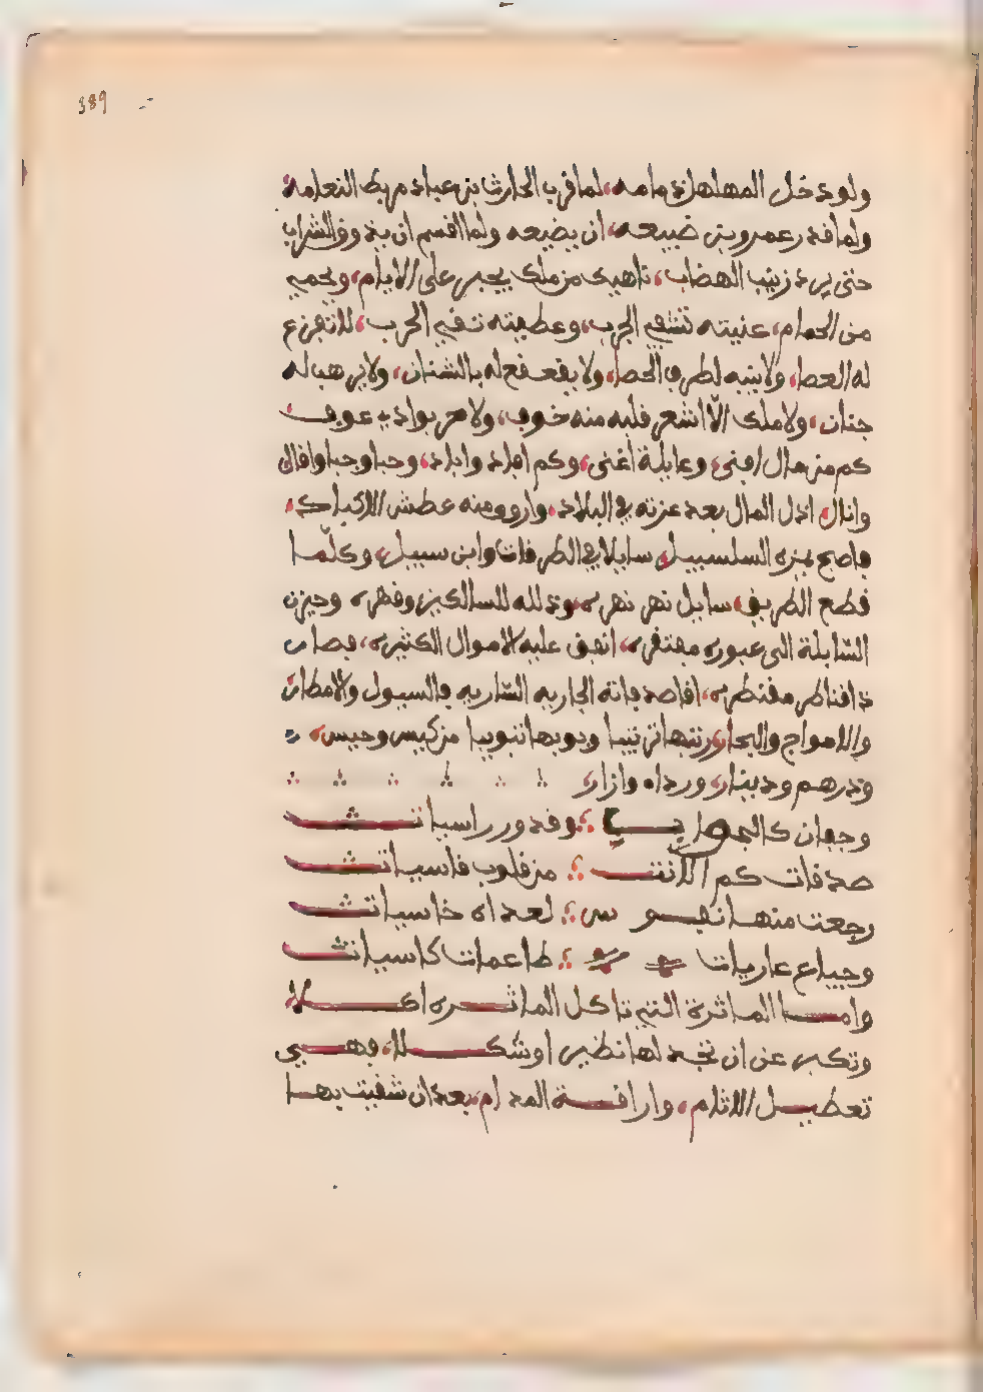 389
ولو دخل المهلهل ذمامه، لما قرب الحارث بن عباد مربط النعامة
ولما قدر عمرو بن ضبيعه، ان يضيعه ولما اقسم ان يذوق الشراب
حتى يرد زبيب الهضاب، ناهيك من ملك يجير على الايام، ويحميه
من الحمام، عنيته تشفي الجرب، وعطيته تنفي الحرب، لا تقرع
له العصا، ولا ينبه لطرف الحصا، ولا يقعقع له بالشنان، ولا يرهب له
جنان، ولا ملك الّا اشعر قلبه منه خوف، ولا حر بوادي عوف
كم من مال افنى، وعايلة اغنى، وكم افاد واباد، وحبا وحبا واقال
وانال، اذل المال بعد عزته في البلاد، واروى منه عطش الاكباد،
فاصبح بنره السلسبيل، سايلا في الطرقات وابن سبيل، وكلّما
قطع الطريق، سايل نهر نهره، وذلله للسالكين وقهره وحين
السّابلة الى عبوره مفتقره، انفق عليه الاموال الكثيره، فصار
ذا قناطر مقنطره، اقاصد فانه الجاريه السّاريه بالسيول والامطار
والامواج والبحار، رتبها ترتيبا وبوبها تبويبا من كيس وحيس،
ودرهم ودينار، ورداه وازار،
وجفان كالجوابي وقدور راسيات
صدقات كم الانت من قلوب قاسيات
رجعت منها نفوس لعداه خاسيات
وجياع عاريات طاعمات كاسيات
وامّا الماثرة التي تاكل الماثره اكلا
وتكبر عن ان تجد لها نظيرا وشكلا، فهي
تعطيل الاثام، واراقة المدام، بعد ان شفيت بها